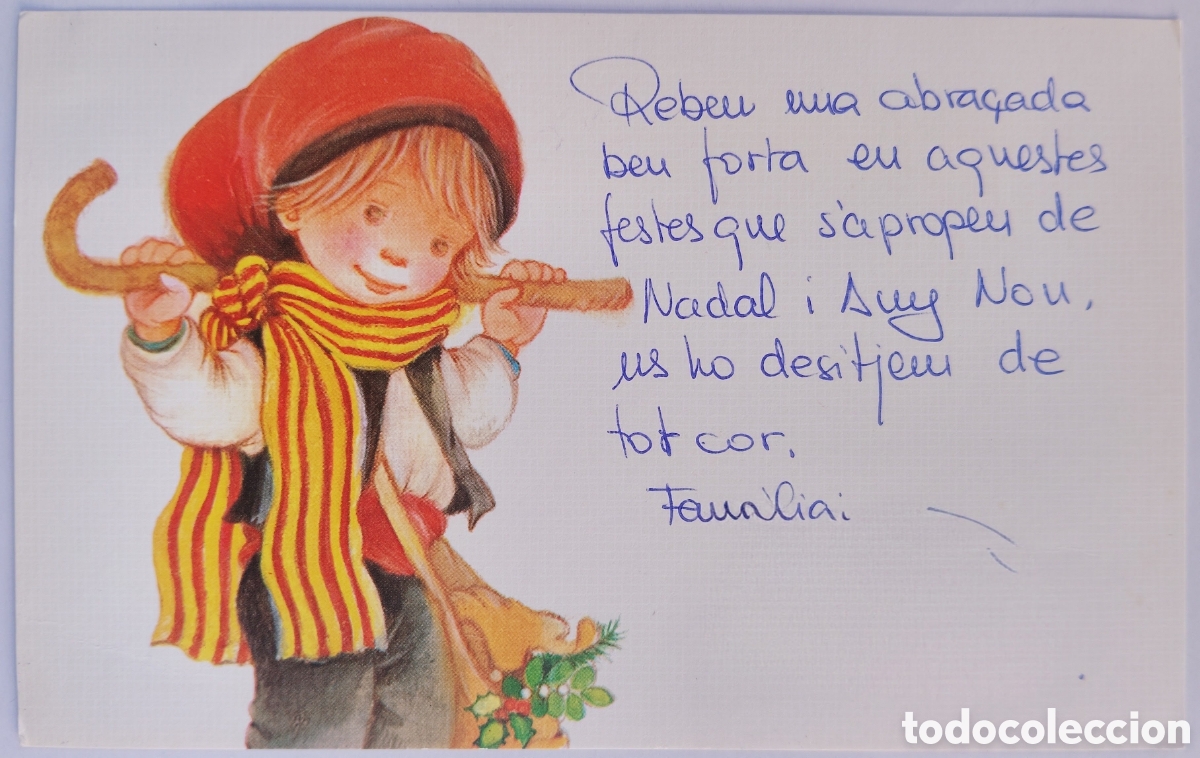 Rebeu una abraçada
ben forta en aquestes
festes que s'apropen de
Nadal i Any Nou,
us ho desitjem de
tot cor.
Família:
todocoleccion